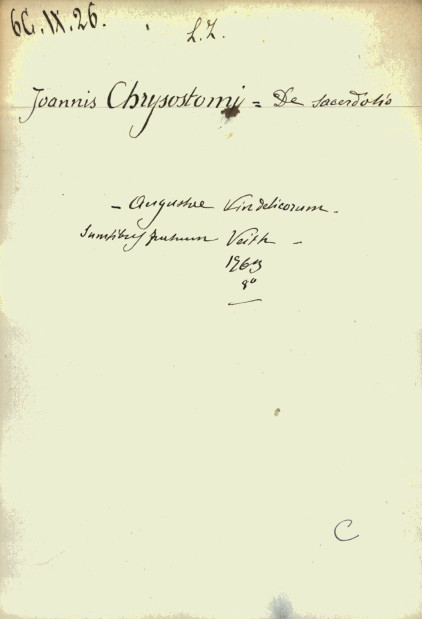 6G.IX.26.
L.Z.
Joannis Chrysostomi = De sacerdotio
- Augustae Vindelicorum -
Sumptibus fratrum Veith -
1763
8º
C